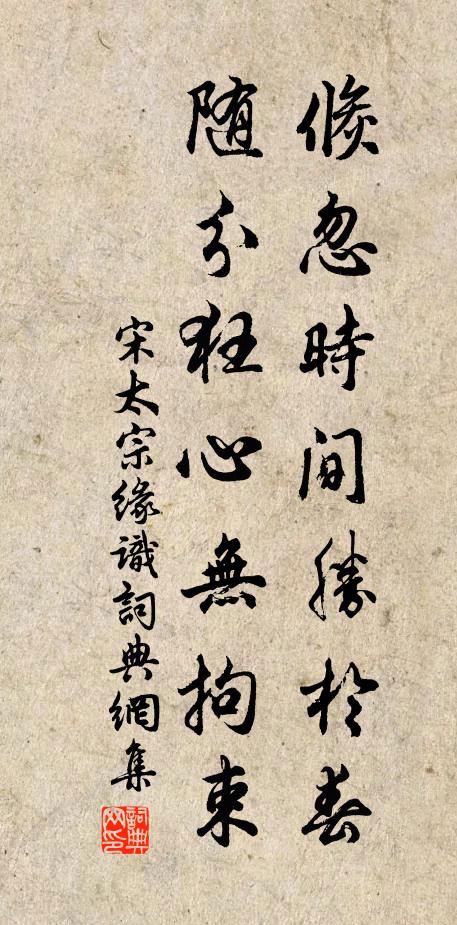 倏忽時間勝於春
随分狂心無拘束
宋太宗緣識詞典網集
詞典网印